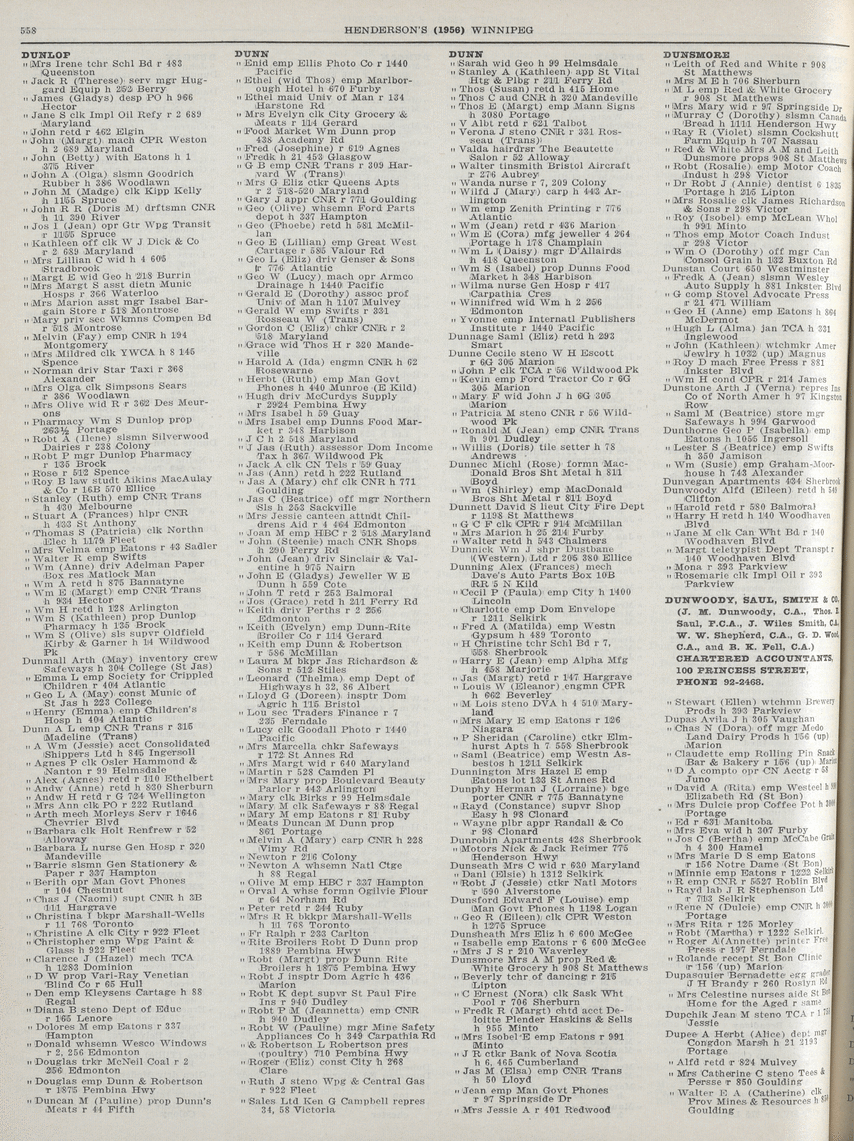 558
HENDERSON'S (1956) WINNIPEG
DUNLOP
" Mrs Irene tchr Schl Bd r 483
Queenston
" Jack R (Therese) serv mgr Hug-
gard Equip h 252 Berry
" James (Gladys) desp PO h 966
Hector
" Jane S clk Impl Oil Refy r 2 689
Maryland
" John retd r 462 Elgin
" John (Margt) mach CPR Weston
h 2 689 Maryland
" John (Betty) with Eatons h 1
375 River
" John A (Olga) slsmn Goodrich
Rubber h 386 Woodlawn
" John M (Madge) clk Kipp Kelly
h 1155 Spruce
" John R R (Doris M) drftsmn CNR
h 11 390 River
" Jos I (Jean) opr Gtr Wpg Transit
r 1155 Spruce
" Kathleen off clk W J Dick & Co
r 2 689 Maryland
" Mrs Lillian C wid h 4 605
Stradbrook
" Margt E wid Geo h 218 Burrin
" Mrs Margt S asst dietn Munic
Hosps r 266 Waterloo
" Mrs Marion asst mgr Isabel Bar-
gain Store r 518 Montrose
" Mary priv sec Wkmns Compen Bd
r 518 Montrose
" Melvin (Fay) emp CNR h 194
Montgomery
" Mrs Mildred clk YWCA h 8 145
Spence
" Norman driv Star Taxi r 368
Alexander
" Mrs Olga clk Simpsons Sears
r 386 Woodlawn
" Mrs Olive wid R r 362 Des Meur-
ons
" Pharmacy Wm S Dunlop prop
263½ Portage
" Robt A (Ilene) slsmn Silverwood
Dairies r 238 Colony
" Robt P mgr Dunlop Pharmacy
r 135 Brock
" Rose r 512 Spence
" Roy B law studt Aikins MacAulay
& Co r 16B 570 Ellice
" Stanley (Ruth) emp CNR Trans
h 430 Melbourne
" Stuart A (Frances) hlpr CNR
h 433 St Anthony
" Thomas S (Patricia) clk Northn
Elec h 1179 Fleet
" Mrs Velma emp Eatons r 43 Sadler
" Walter R emp Swifts
" Wm (Anne) driv Adelman Paper
Box res Matlock Man
" Wm A retd h 875 Bannatyne
" Wm E (Margt) emp CNR Trans
h 934 Hector
" Wm H retd h 128 Arlington
" Wm S (Kathleen) prop Dunlop
Pharmacy h 135 Brock
" Wm S (Olive) sls supvr Oldfield
Kirby & Garner h 14 Wildwood
Pk
Dunmall Arth (May) inventory crew
Safeways h 304 College (St Jas)
" Emma L emp Society for Crippled
Children r 404 Atlantic
" Geo L A (May) const Munic of
St Jas h 223 College
" Henry (Emma) emp Children's
Hosp h 404 Atlantic
Dunn A L emp CNR Trans r 315
Madeline (Trans)
" A Wm (Jessie) acct Consolidated
Shippers Ltd h 845 Ingersoll
" Agnes P clk Osler Hammond &
Nanton r 99 Helmsdale
" Alex (Agnes) retd r 110 Ethelbert
" Andw (Anne) retd h 830 Sherburn
" Andw H retd r G 724 Wellington
" Mrs Ann clk PO r 222 Rutland
" Arth mech Morleys Serv r 1646
Chevrier Blvd
" Barbara clk Holt Renfrew r 52
Alloway
" Barbara L nurse Gen Hosp r 320
Mandeville
" Barrie slsmn Gen Stationery &
Paper r 337 Hampton
" Berith opr Man Govt Phones
r 104 Chestnut
" Chas J (Naomi) supt CNR h 3B
111 Hargrave
" Christina I bkpr Marshall-Wells
r 11 768 Toronto
" Christine A clk City r 922 Fleet
" Christopher emp Wpg Paint &
Glass h 922 Fleet
" Clarence J (Hazel) mech TCA
h 1283 Dominion
" D W prop Vari-Ray Venetian
Blind Co r 65 Hull
" Den emp Kleysens Cartage h 88
Regal
" Diana B steno Dept of Educ
r 165 Lenore
" Dolores M emp Eatons r 337
Hampton
" Donald whsemn Wesco Windows
r 2, 256 Edmonton
" Douglas trkr McNeil Coal r 2
256 Edmonton
" Douglas emp Dunn & Robertson
r 1875 Pembina Hwy
" Duncan M (Pauline) prop Dunn's
Meats r 44 Fifth
DUNN
" Enid emp Ellis Photo Co r 1440
Pacific
" Ethel (wid Thos) emp Marlbor-
ough Hotel h 670 Furby
" Ethel maid Univ of Man r 134
Harstone Rd
" Mrs Evelyn clk City Grocery &
Meats r 114 Gerard
" Food Market Wm Dunn prop
438 Academy Rd
" Fred (Josephine) r 619 Agnes
" Fredk h 21 453 Glasgow
" G B emp CNR Trans r 309 Har-
vard W (Trans)
" Mrs G Eliz ctkr Queens Apts
r 2 518-520 Maryland
" Gary J appr CNR r 771 Goulding
" Geo (Olive) whsemn Ford Parts
depot h 337 Hampton
" Geo (Phoebe) retd h 581 McMil-
lan
" Geo E (Lillian) emp Great West
Cartage r 585 Valour Rd
" Geo L (Eliz) driv Genser & Sons
r 776 Atlantic
" Geo W (Lucy) mach opr Armco
Drainage h 1440 Pacific
" Gerald E (Dorothy) assoc prof
Univ of Man h 1107 Mulvey
" Gerald W emp Swifts r 331
Rosseau W (Trans)
" Gordon C (Eliz) chkr CNR r 2
518 Maryland
" Grace wid Thos H r 320 Mande-
ville
" Harold A (Ida) engmn CNR h 62
Rosewarne
" Herbt (Ruth) emp Man Govt
Phones h 440 Munroe (E Kild)
" Hugh driv McCurdys Supply
r 2924 Pembina Hwy
" Mrs Isabel h 59 Guay
" Mrs Isabel emp Dunns Food Mar-
ket r 348 Harbison
" J C h 2 518 Maryland
" J Jas (Ruth) assessor Dom Income
Tax h 367 Wildwood Pk
" Jack A clk CN Tels r 59 Guay
" Jas (Ann) retd h 222 Rutland
" Jas A (Mary) chf clk CNR h 771
Goulding
" Jas C (Beatrice) off mgr Northern
Sls h 253 Sackville
" Mrs Jessie canteen attndt Chil-
drens Aid r 4 464 Edmonton
" Joan M emp HBC r 2 518 Maryland
" John (Steenie) mach CNR Shops
h 290 Ferry Rd
" John (Jean) driv Sinclair & Val-
entine h 975 Nairn
" John E (Gladys) Jeweller W E
Dunn h 559 Cote
" John T retd r 253 Balmoral
" Jos (Grace) retd h 241 Ferry Rd
" Keith driv Perths r 2 256
Edmonton
" Keith (Evelyn) emp Dunn-Rite
Broiler Co r 114 Gerard
" Keith emp Dunn & Robertson
r 586 McMillan
" Laura M bkpr Jas Richardson &
Sons r 512 Stiles
" Leonard (Thelma) emp Dept of
Highways h 32, 86 Albert
" Lloyd G (Doreen) insptr Dom
Agric h 115 Bristol
" Lou sec Traders Finance r 7
235 Ferndale
" Lucy clk Goodall Photo r 1440
Pacific
" Mrs Marcella chkr Safeways
r 172 St Annes Rd
" Mrs Margt wid r 640 Maryland
" Martin r 528 Camden Pl
" Mrs Mary prop Boulevard Beauty
Parlor r 443 Arlington
" Mary clk Birks r 99 Helmsdale
" Mary M clk Safeways r 88 Regal
" Mary M emp Eatons r 81 Ruby
" Meats Duncan M Dunn prop
861 Portage
" Melvin A (Mary) carp CNR h 228
Vimy Rd
" Newton r 216 Colony
" Newton A whsemn Natl Ctge
h 88 Regal
" Olive M emp HBC r 337 Hampton
" Orval A whse formn Ogilvie Flour
r 64 Norham Rd
" Peter retd r 244 Ruby
" Mrs R R bkkpr Marshall-Wells
h 11 768 Toronto
" Fr Ralph r 233 Carlton
" Rite Broilers Robt D Dunn prop
1889 Pembina Hwy
" Robt (Margt) prop Dunn Rite
Broilers h 1875 Pembina Hwy
" Robt J insptr Dom Agric h 436
Marion
" Robt K dept supvr St Paul Fire
Ins r 940 Dudley
" Robt P M (Jeannetta) emp CNR
h 940 Dudley
" Robt W (Pauline) mgr Mine Safety
Appliances Co h 349 Carpathia Rd
" & Robertson L Robertson pres
(poultry) 710 Pembina Hwy
" Roger (Eliz) const City h 268
Clare
" Ruth J steno Wpg & Central Gas
r 922 Fleet
" Sales Ltd Ken G Campbell repres
34, 58 Victoria
DUNN
" Sarah wid Geo h 99 Helmsdale
" Stanley A (Kathleen) app St Vital
Htg & Plbg r 211 Ferry Rd
" Thos (Susan) retd h 415 Home
" Thos C aud CNR h 320 Mandeville
" Thos E (Margt) emp Mann Signs
h 3080 Portage
" V Albt retd r 621 Talbot
" Verona J steno CNR r 331 Ros-
seau (Trans)
" Valda hairdrsr The Beautette
Salon r 52 Alloway
" Walter tinsmith Bristol Aircraft
r 276 Aubrey
" Wanda nurse r 7, 209 Colony
" Wilfd J (Mary) carp h 443 Ar-
lington
" Wm emp Zenith Printing r 776
Atlantic
" Wm (Jean) retd r 436 Marion
" Wm E (Cora) mfg jeweller 4 264
Portage h 178 Champlain
" Wm L (Daisy) mgr D'Allairds
h 418 Queenston
" Wm S (Isabel) prop Dunns Food
Market h 348 Harbison
" Wilma nurse Gen Hosp r 417
Carpathia Cres
" Winnifred wid Wm h 2 256
Edmonton
" Yvonne emp Internatl Publishers
Institute r 1440 Pacific
Dunnage Saml (Eliz) retd h 293
Smart
Dunne Cecile steno W H Escott
r 6G 305 Marion
" John P clk TCA r 56 Wildwood Pk
" Kevin emp Ford Tractor Co r 6G
305 Marion
" Mary F wid John J h 6G 305
Marion
" Patricia M steno CNR r 56 Wild-
wood Pk
" Ronald M (Jean) emp CNR Trans
h 901 Dudley
" Willis (Doris) tile setter h 78
Andrews
Dunnec Michl (Rose) formn Mac-
Donald Bros Sht Metal h 811
Boyd
" Wm (Shirley) emp MacDonald
Bros Sht Metal r 811 Boyd
Dunnett David S lieut City Fire Dept
r 1198 St Matthews
" G C F clk CPR r 914 McMillan
" Mrs Marion h 25 214 Furby
" Walter retd h 543 Chalmers
Dunnick Wm J shpr Dustbane
(Western) Ltd r 205 380 Ellice
Dunning Alex (Frances) mech
Dave's Auto Parts Box 10B
RR 5 N Kild
" Cecil P (Paula) emp City h 1400
Lincoln
" Charlotte emp Dom Envelope
r 1211 Selkirk
" Fred A (Matilda) emp Westn
Gypsum h 489 Toronto
" H Christine tchr Schl Bd r 7,
558 Sherbrook
" Harry E (Jean) emp Alpha Mfg
h 458 Marjorie
" Jas (Margt) retd r 147 Hargrave
" Louis W (Eleanor) engmn CPR
h 662 Beverley
" M Lois steno DVA h 4 510 Mary-
land
" Mrs Mary E emp Eatons r 126
Niagara
" P Sheridan (Caroline) ctkr Elm-
hurst Apts h 7 558 Sherbrook
" Saml (Beatrice) emp Westn As-
bestos h 1211 Selkirk
Dunnington Mrs Hazel E emp
Eatons lot 133 St Annes Rd
Dunphy Herman J (Lorraine) bge
porter CNR r 775 Bannatyne
" Rayd (Constance) supvr Shop
Easy h 98 Clonard
" Wayne plbr appr Randall & Co
r 98 Clonard
Dunrobin Apartments 428 Sherbrook
" Motors Nick & Jack Reimer 775
Henderson Hwy
Dunseath Mrs C wid r 630 Maryland
" Danl (Elsie) h 1312 Selkirk
" Robt J (Jessie) ctkr Natl Motors
r 590 Alverstone
Dunsford Edward F (Louise) emp
Man Govt Phones h 1198 Logan
" Geo R (Eileen) clk CPR Weston
h 1275 Spruce
Dunsheath Mrs Eliz h 6 600 McGee
" Isabelle emp Eatons r 6 600 McGee
" Mrs J S r 210 Waverley
Dunsmore Mrs A M prop Red &
White Grocery h 908 St Matthews
" Beverly tchr of dancing r 215
Lipton
" C Ernest (Nora) clk Sask Wht
Pool r 706 Sherburn
" Fredk R (Margt) chtd acct De-
loitte Plender Haskins & Sells
h 955 Minto
" Mrs Isobel E emp Eatons r 991
Minto
" J R ctkr Bank of Nova Scotia
h 6, 465 Cumberland
" Jas M (Elsa) emp CNR Trans
h 50 Lloyd
" Jean emp Man Govt Phones
r 97 Springside Dr
" Mrs Jessie A r 401 Redwood
DUNSMORE
" Leith of Red and White r 908
St Matthews
" Mrs M E h 706 Sherburn
" M L emp Red & White Grocery
r 908 St Matthews
" Mrs Mary wid r 97 Springside Dr
" Murray C (Dorothy) slsmn Canada
Bread h 1111 Henderson Hwy
" Ray R (Violet) slsmn Cockshutt
Farm Equip h 707 Nassau
" Red & White Mrs A M and Leith
Dunsmore props 908 St Matthews
" Robt (Rosalie) emp Motor Coach
Indust h 298 Victor
" Dr Robt J (Anne) dentist 6 1835
Portage h 215 Lipton
" Mrs Rosalie clk James Richardson
& Sons r 298 Victor
" Roy (Isobel) emp McLean Whol
h 991 Minto
" Thos emp Motor Coach Indust
r 298 Victor
" Wm O (Dorothy) off mgr Can
Consol Grain h 132 Buxton Rd
Dunstan Court 650 Westminster
" Fredk A (Jean) slsmn Wesley
Auto Supply h 881 Inkster Blvd
" G comp Stovel Advocate Press
r 21 471 William
" Geo H (Anne) emp Eatons h 864
McDermot
" Hugh L (Alma) jan TCA h 331
Inglewood
" John (Kathleen) wtchmkr Amer
Jewlry h 1032 (up) Magnus
" Roy D mach Free Press r 881
Inkster Blvd
" Wm H cond CPR r 214 James
Dunstone Arth J (Verna) repres Ins
Co of North Amer h 97 Kingston
Row
" Saml M (Beatrice) store mgr
Safeways h 994 Garwood
Dunthorne Geo P (Isabella) emp
Eatons h 1055 Ingersoll
" Lester S (Beatrice) emp Swifts
h 350 Jamison
" Wm (Susie) emp Graham-Moor-
house h 743 Alexander
Dunvegan Apartments 434 Sherbrook
Dunwoody Alfd (Eileen) retd h 540
Clifton
" Harold retd r 580 Balmoral
" Harry H retd h 140 Woodhaven
Blvd
" Jane M clk Can Wht Bd r 140
Woodhaven Blvd
" Margt teletypist Dept Transpt r
140 Woodhaven Blvd
" Mona r 393 Parkview
" Rosemarie clk Impl Oil r 393
Parkview
DUNWOODY, SAUL, SMITH & CO,
(J. M. Dunwoody, C.A., Thos.
Saul, F.C.A., J. Wiles Smith, C.A.
W. W. Shepherd, C.A., G. D. Wood,
C.A., and B. K. Pell, C.A.)
CHARTERED ACCOUNTANTS,
100 PRINCESS STREET,
PHONE 92-2468.
" Stewart (Ellen) wtchmn Brewery
Prods h 393 Parkview
Dupas Avila J h 305 Vaughan
" Chas N (Dora) off mgr Medo
Land Dairy Prods h 156 (up)
Marion
" Claudette emp Rolling Pin Snack
Bar & Bakery r 156 (up) Marion
" D A compto opr CN Acctg r 58
Juno
" David A (Rita) emp Westeel h
Elizabeth Rd (St Bon)
" Mrs Dulcie prop Coffee Pot h
Portage
" Ed r 631 Manitoba
" Mrs Eva wid h 307 Furby
" Jos C (Bertha) emp McCabe Grain
h 4 300 Hamel
" Mrs Marie D S emp Eatons
r 156 Notre Dame (St Bon)
" Minnie emp Eatons r 1222 Selkirk
" R emp CNR r 5527 Roblin Blvd
" Rayd lab J R Stephenson Ltd
r 793 Selkirk
" Rene N (Dulcie) emp CNR h
Portage
" Mrs Rita r 125 Morley
" Robt (Martha) r 1222 Selkirk
" Roger A (Annette) printer Free
Press r 197 Ferndale
" Rolande recept St Bon Clinic
r 156 (up) Marion
Dupasquier Bernadette egg grader
J H Brandy r 260 Roslyn Rd
" Mrs Celestine nurses aide St Bon
Home for the Aged r same
Dupchik Jean M steno TCA r
Jessie
Dupee A Herbt (Alice) dept mgr
Congdon Marsh h 21 2193
Portage
" Alfd retd r 824 Mulvey
" Mrs Catherine C steno Tees &
Persse r 850 Goulding
" Walter E A (Catherine) clk
Prov Mines & Resources h
Goulding